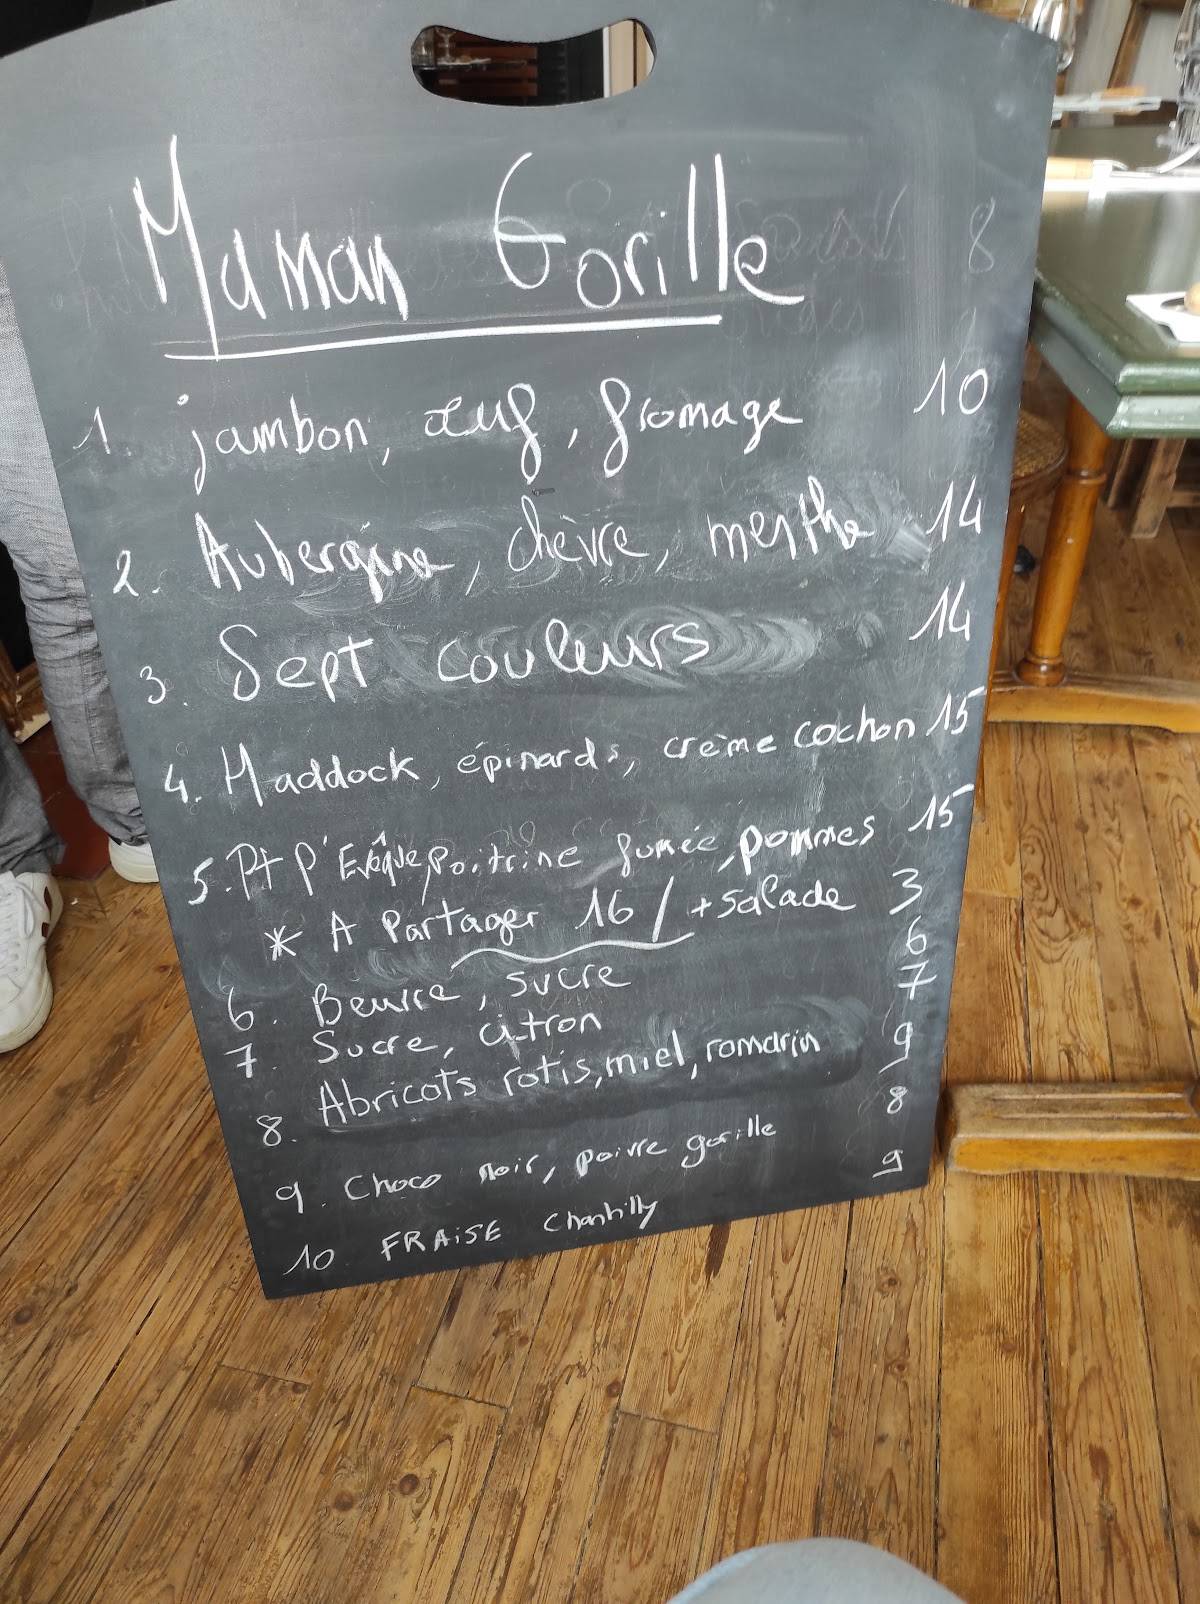 Maman Gorille
1. jambon, œuf, fromage 10
2. Aubergine, chèvre, menthe 14
3. Sept couleurs 14
4. Haddock, épinards, crème cochon 15
5. Pt P'Evêque, poitrine fumée, pommes 15
* A Partager 16 / + salade 3
6. Beurre, sucre 6
7. Sucre, citron 7
8. Abricots rotis, miel, romarin 9
9. Choco noir, poivre gorille 8
10 FRAiSE Chantilly 9